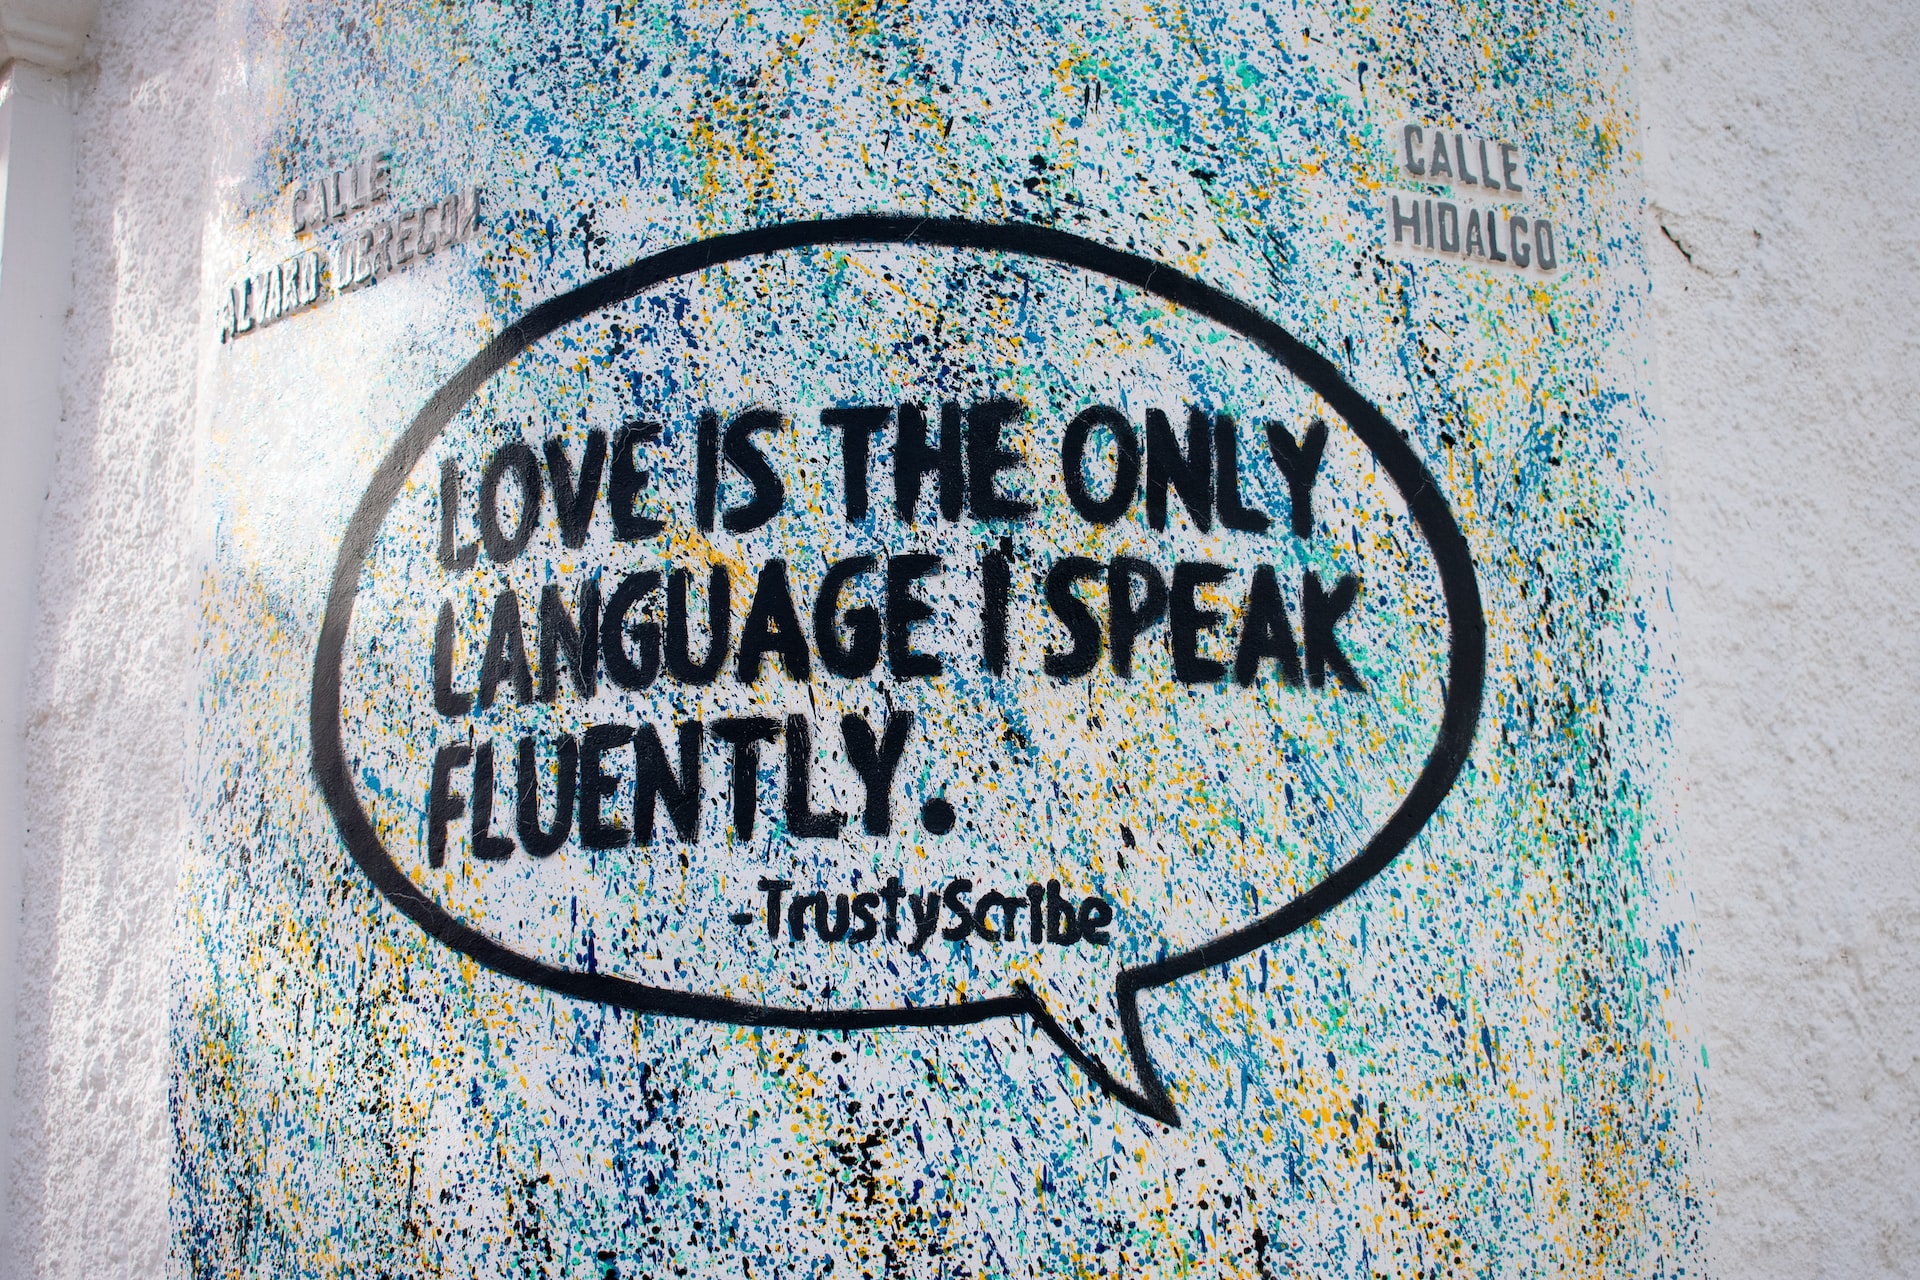 CALLE
ALVARO OBREGON
CALLE
HIDALGO
LOVE IS THE ONLY
LANGUAGE I SPEAK
FLUENTLY.
-TrustyScribe